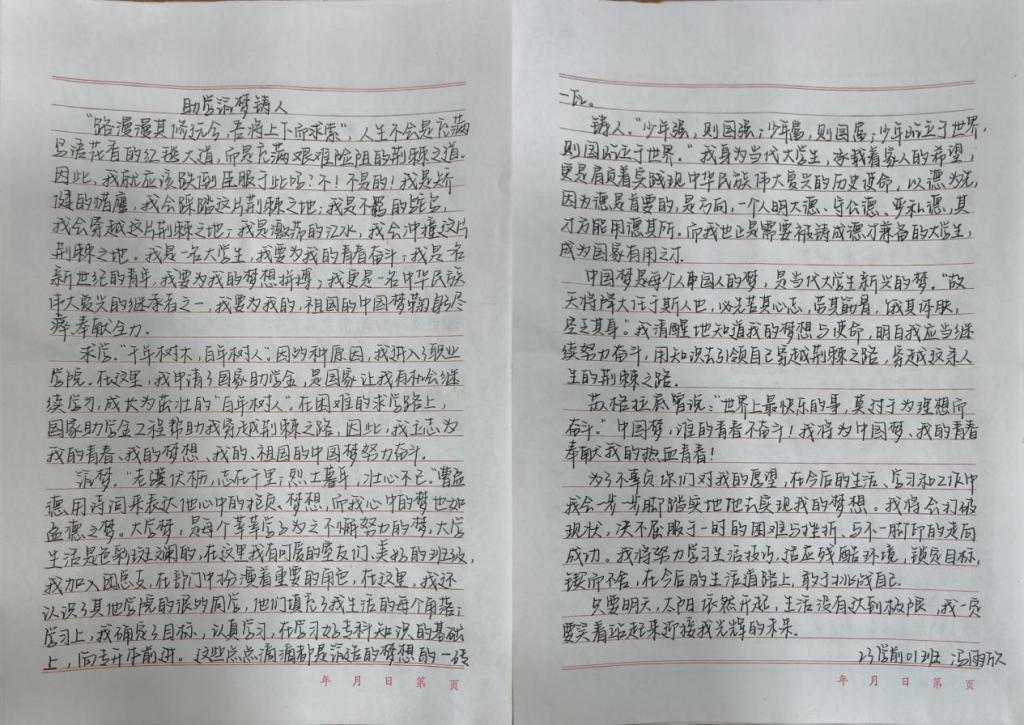 助学筑梦铸人
"路漫漫其修远兮,吾将上下而求索",人生不会是充满
鸟语花香的红毯大道,而是充满艰难险阻的荆棘之道。
因此,我就应该跌倒屈服于此吗?不!不是的!我是矫
健的雄鹰,我会踩踏这片荆棘之地;我是不羁的
我会穿越这片荆棘之地;我是激荡的江水,我会冲撞这片
荆棘之地。我是一名大学生,我要为我的青春奋斗;我是一名
新世纪的青年,我要为我的梦想拼搏;我更是一名中华民族
伟大复兴的继承者之一,我要为我的,祖国的中国梦鞠躬尽
瘁,奉献全力.
求学."千年树木,百年树人".因的种原因,我进入了职业
学院.在这里,我申请了国家助学金,是国家让我有机会继
续学习,成长为茁壮的"百年树人".在困难的求学路上,
国家助学金工程帮助我穿越荆棘之路,因此,我立志为
我的青春、我的梦想、我的、祖国的中国梦努力奋斗.
筑梦."老骥伏枥,志在千里;烈士暮年,壮心不已."曹孟
德用诗词来表达他心中的抱负、梦想,而我心中的梦也如
孟德之梦。大学梦,是每个莘莘学子为之不懈努力的梦,大学
生活是色彩斑斓的,在这里我有可爱的室友们、美好的班级,
我加入团总支,在部门中扮演着重要的角色,在这里,我还
认识了其他学院的很多同学,他们填充了我生活的每个角落;
学习上,我确定了目标,认真学习,在学习好专科知识的基础
上,向专升本前进。这些点点滴滴都是筑造的梦想的一砖
年 月 日 第 页
一瓦。
铸人."少年强,则国强;少年屈,则国屈;少年屹立于世界,
则国屹立于世界."我身为当代大学生,承载着家人的希望,
更是肩负着实践现中华民族伟大复兴的历史使命,以德为先,
因为德是首要的,是方向,一个人明大德、守公德、严私德,其
才方能用德其所.而我也正是需要被铸成德才兼备的大学生,
成为国家有用之才.
中国梦是每个人中国人的梦,是当代大学生新兴的梦."故
天将降大任于斯人也,必先苦其心志,劳其筋骨,饿其体肤,
空乏其身."我清醒地知道我的梦想与使命,明白我应当继
续努力奋斗,用知识去引领自己穿越荆棘之路,穿越这条人
生的荆棘之路.
苏格拉底曾说:"世界上最快乐的事,莫过于为理想而
奋斗."中国梦,谁的青春不奋斗!我将为中国梦、我的青春
奉献我的热血青春!
为了不辜负你们对我的愿望,在今后的生活、学习和工作中
我会一步一步脚踏实地地去实现我的梦想.我将会打破
现状,决不屈服于一时的困难与挫折,与不一脚印的走向
成功.我将努力学习生活技巧,适应残酷环境,锁定目标,
锲而不舍,在今后的生活道路上,敢于挑战自己.
只要明天,太阳依然升起,生活没有达到极限,我一定
要笑着站起来迎接我光辉的未来.
23学前01班 冯雨欣
年 月 日 第 页